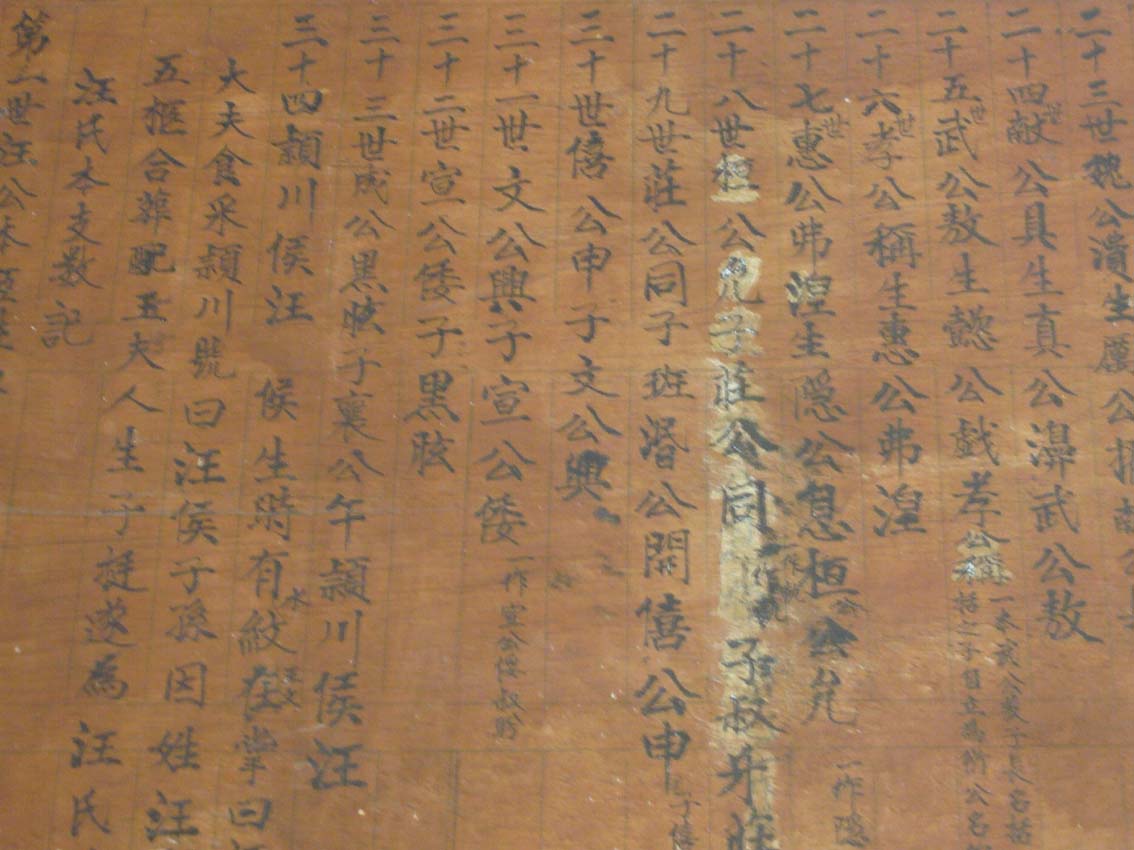 二十三世魏公濞生厲公擢献公具
二十四世献公具生真公濞武公敖
二十五世武公敖生懿公戯孝公稱一本武公敖子長名括括之子自立爲
二十六世孝公稱生惠公弗湟
二十七世惠公弗湟生隠公息桓公允一作隠
二十八世桓公允子莊公同子叔牙莊
二十九世莊公同子班湣公開僖公申
三十世僖公申子文公興
三十一世文公興子宣公倭一作宣公倭叔肸
三十二世宣公倭子黒肱
三十三世成公黒肱子襄公午潁川侯汪
三十四潁川侯汪 侯生時有水紋在掌曰
大夫食采潁川號曰汪侯子孫因姓汪
五柩合葬配王夫人生子挺遂爲汪氏
汪氏本支数記
第一世汪公本